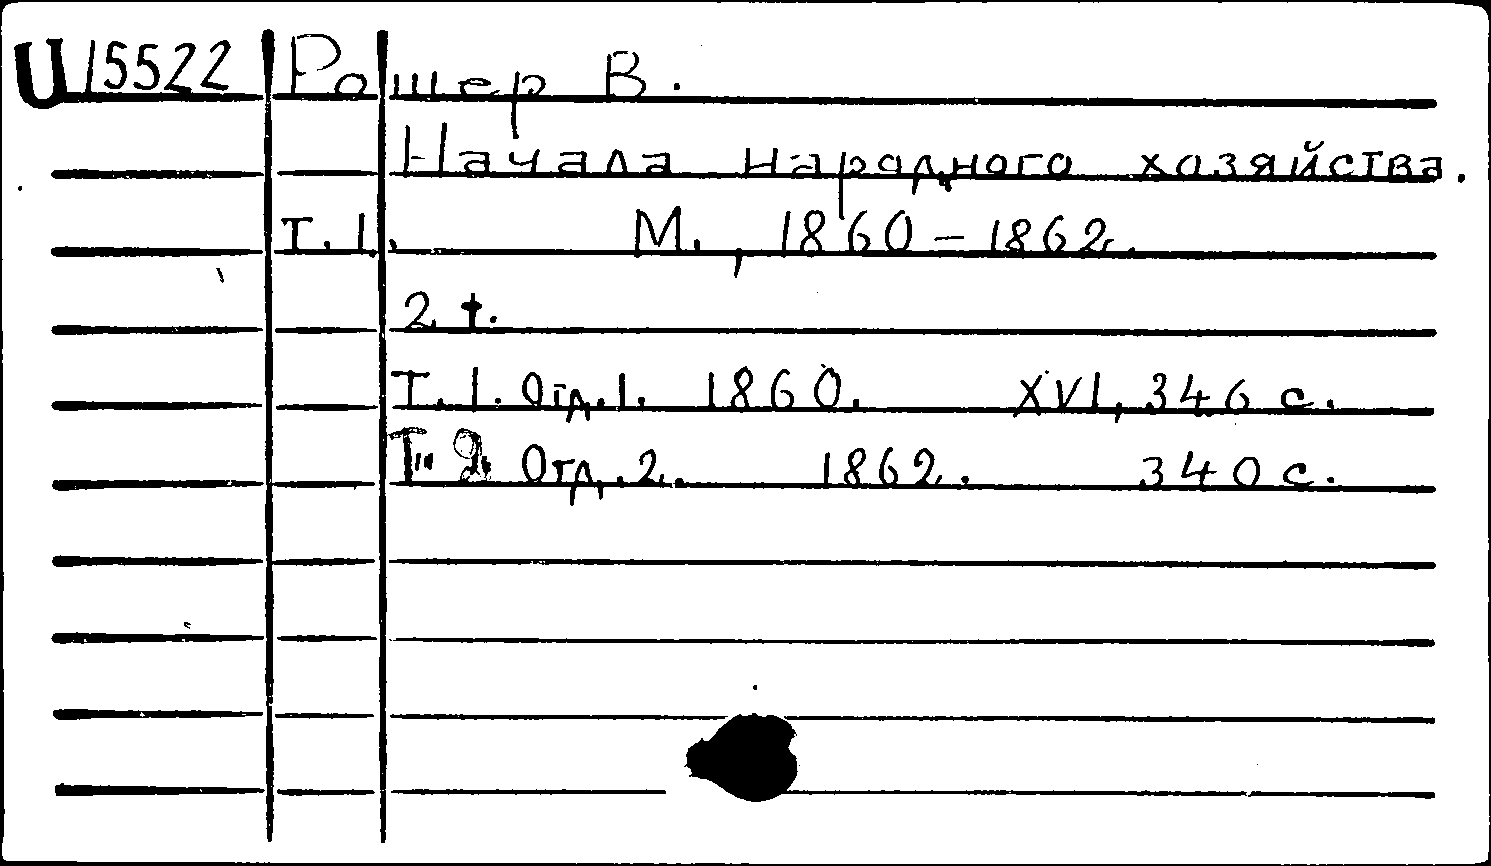 U 15522 Рошер В.
Начала народного хозяйства.
Т. 1. М., 1860 – 1862.
2 т.
Т. 1. Отд. 1. 1860. XVI, 346 с.
Т. 2. Отд. 2. 1862. 340 с.